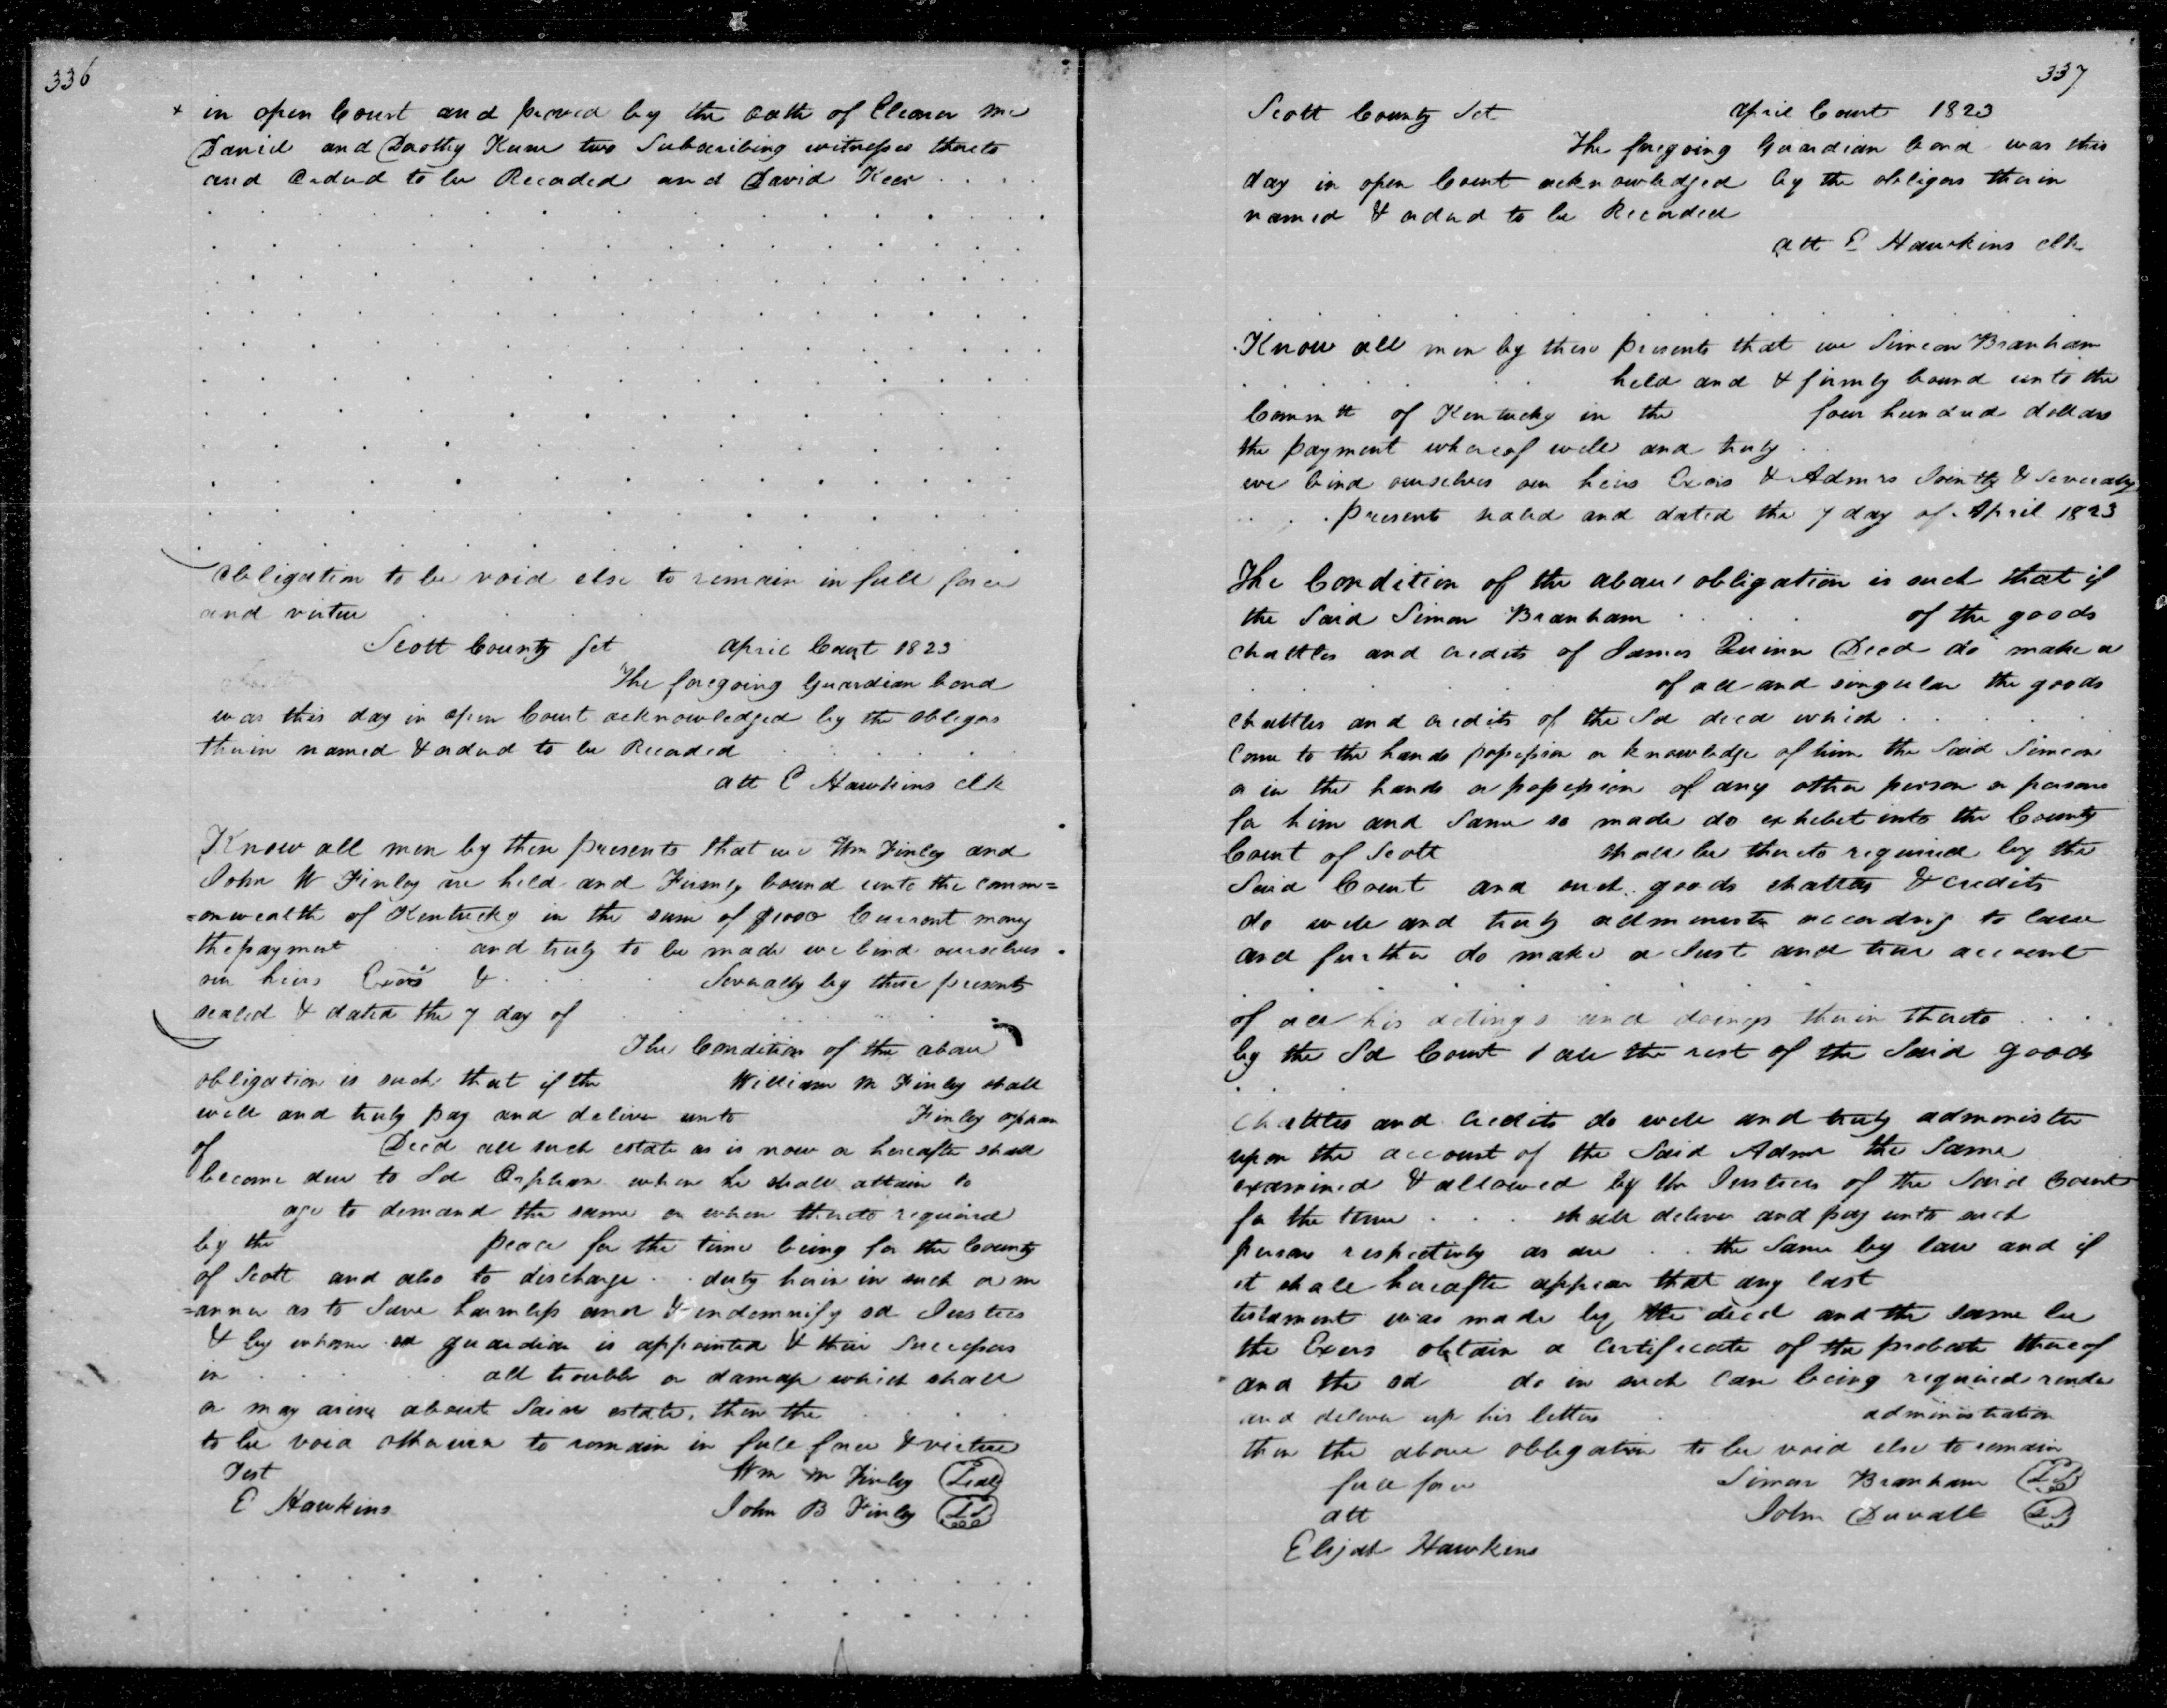 336
x in open Court and proved by the oath of Eleanor Mc
Daniel and Dorothy Kerr two Subscribing witnesses thereto
and Ordered to be Recorded and David Kerr
Obligation to be void else to remain in full force
and virtue
Scott County Sct April Court 1823
The foregoing Guardian bond
was this day in open Court acknowledged by the obligors
therein named & ordered to be Recorded
att E Hawkins clk
Know all men by these presents that we Wm Finley and
John W Finley are held and Firmly bound unto the comm=
=onwealth of Kentucky in the sum of $1000 Current money
the payment and truly to be made we bind ourselves
our heirs Exors & Severally by these presents
sealed & dated the 7 day of
The Condition of the above
obligation is such that if the William M Finley shall
well and truly pay and deliver unto Finley orphan
of Decd all such estate as is now or hereafter shall
become due to Sd Orphan when he shall attain to
age to demand the same or when thereto required
by the peace for the time being for the County
of Scott and also to discharge duty herein in such a m
=anner as to Save harmless and & indemnify sd Justices
& by whom sd guardian is appointed & their Successors
in all trouble or damage which shall
or may arise about Said estate, then the
to be void otherwise to remain in full force & virtue
Test Wm M Finley Seal
E Hawkins John B Finley LS
337
Scott County Sct April Court 1823
The foregoing Guardian bond was this
day in open Court acknowledged by the obligors therein
named & ordered to be Recorded
att E Hawkins clk
Know all men by these presents that we Simeon Branham
held and & firmly bound unto the
Commtt of Kentucky in the four hundred dollars
the payment whereof well and truly
we bind ourselves our heirs Exors & Admrs Jointly & Severally
presents sealed and dated the 7 day of April 1823
The Condition of the above obligation is such that if
the Said Simon Branham of the goods
chattles and credits of James Quinn Decd do make a
of all and singular the goods
chattles and credits of the Sd decd which
Come to the hands possession or knowledge of him the Said Simeon
or in the hands or possession of any other person or persons
for him and Same so made do exhebit into the County
Court of Scott shall be thereto required by the
Said Court and such goods chattles & credits
do well and truly administer according to law
and further do make a Just and true account
of all his actings and doings therein thereto
by the Sd Court & all the rest of the Said goods
Chattles and Credits do well and truly administer
upon the account of the Said Admr the Same
examined & allowed by the Justices of the Said Court
for the time shall deliver and pay unto such
persons respectively as are the Same by law and if
it shall hereafter appear that any last
testament was made by the decd and the same be
the Exors obtain a Certificate of the probate thereof
and the sd do in such Case being required render
and deliver up his letters administration
then the above obligation to be void else to remain
full force Simon Branham LS
att John Duvall LS
Elijah Hawkins